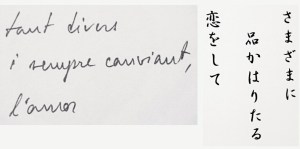 tant divers
i sempre canviant,
l'amor
さまざまに
品かはりたる
恋をして